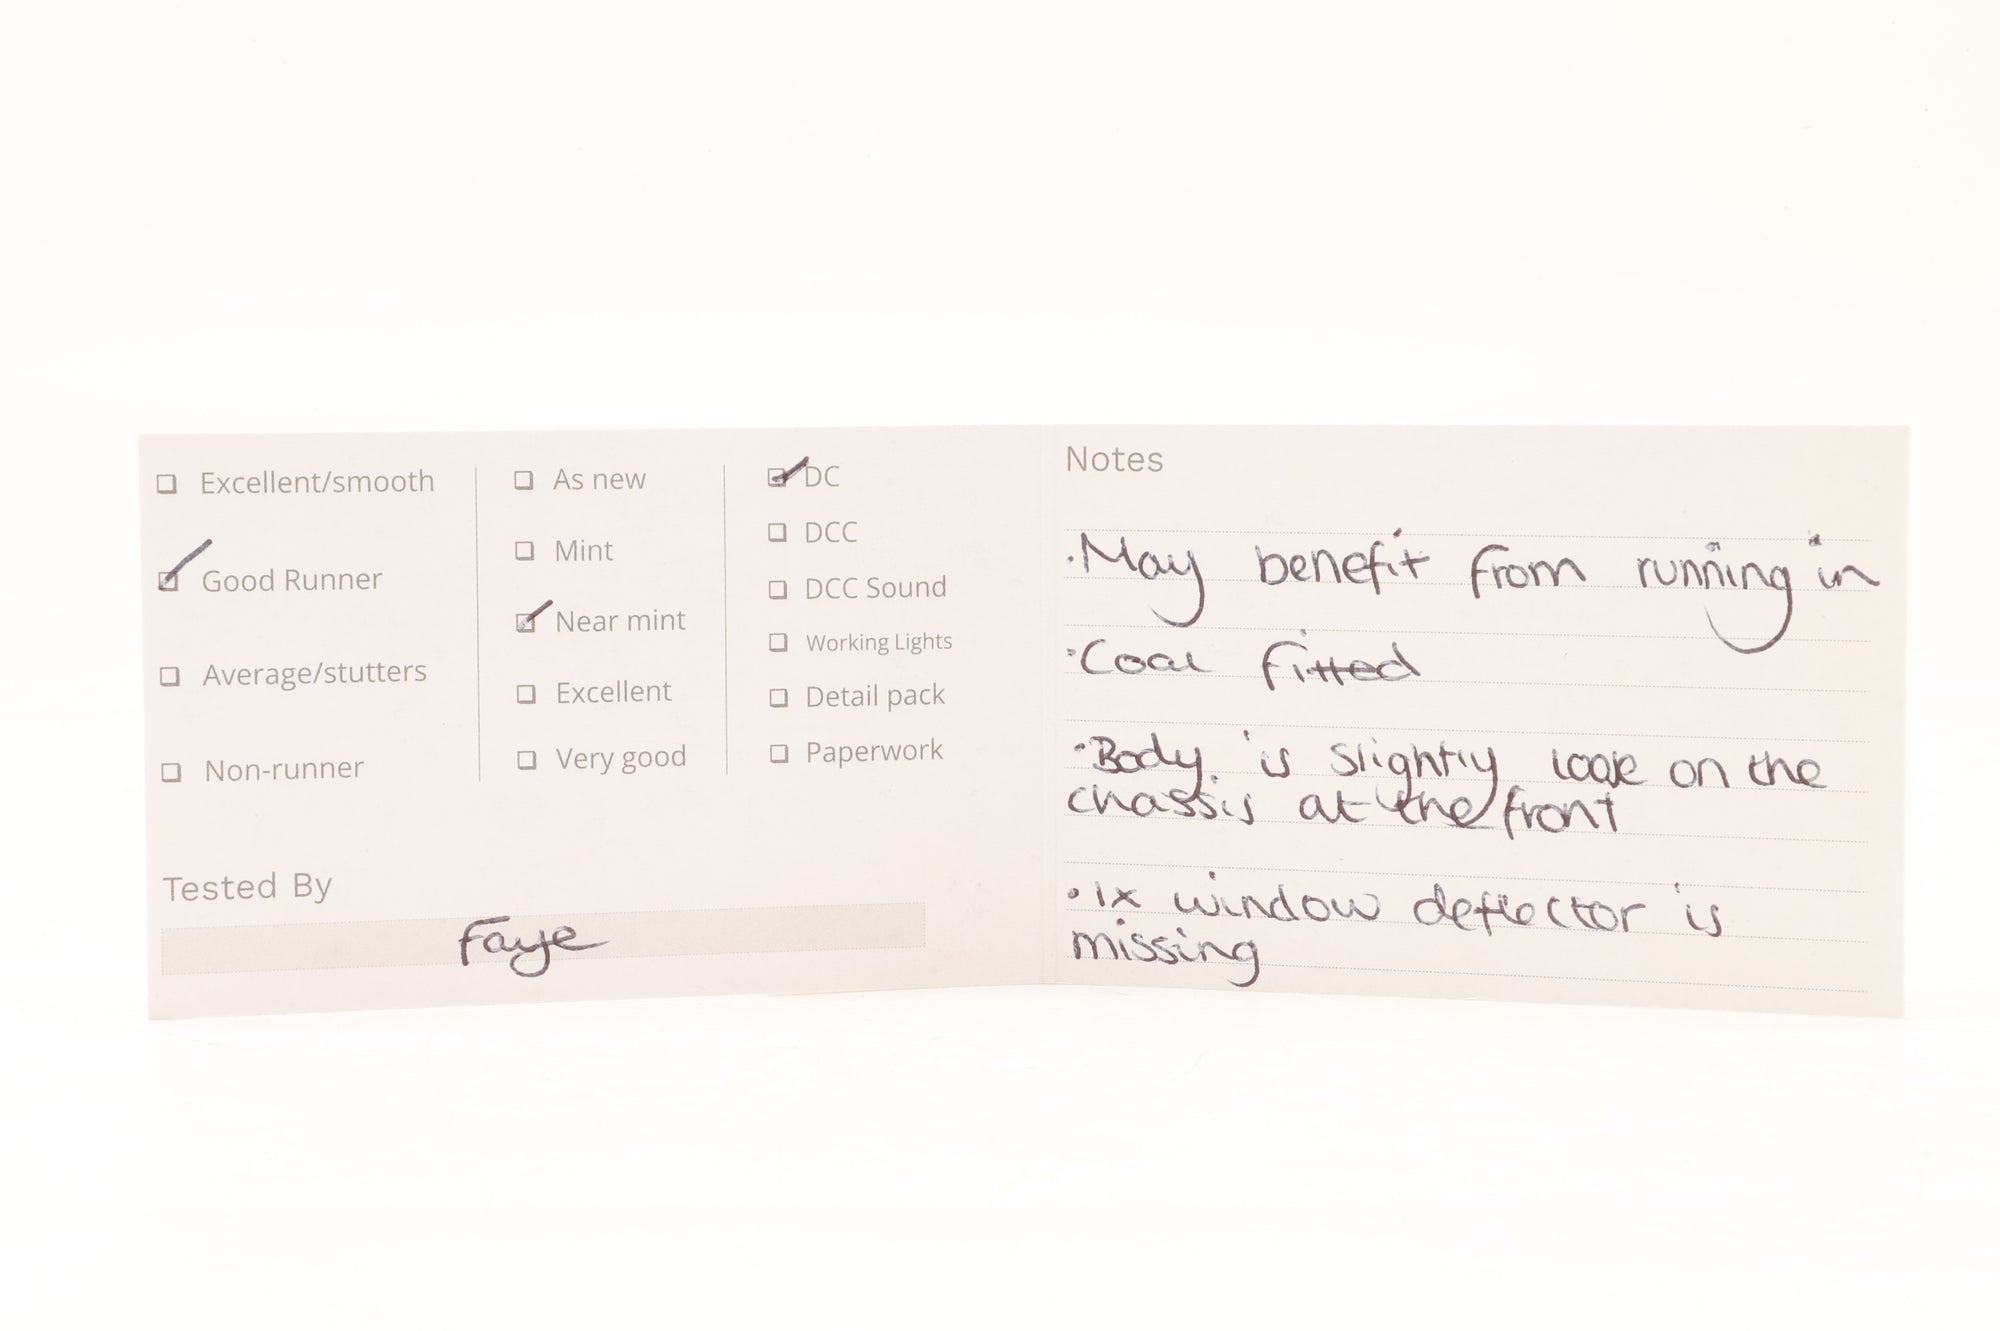 ☐ Excellent/smooth
☑ Good Runner
☐ Average/stutters
☐ Non-runner
☐ As new
☐ Mint
☑ Near mint
☐ Excellent
☐ Very good
☑ DC
☐ DCC
☐ DCC Sound
☐ Working Lights
☐ Detail pack
☐ Paperwork
Tested By
Faye
Notes
·May benefit from running in
·Coal fitted
·Body is slightly loose on the
chassis at the front
·1x window deflector is
missing